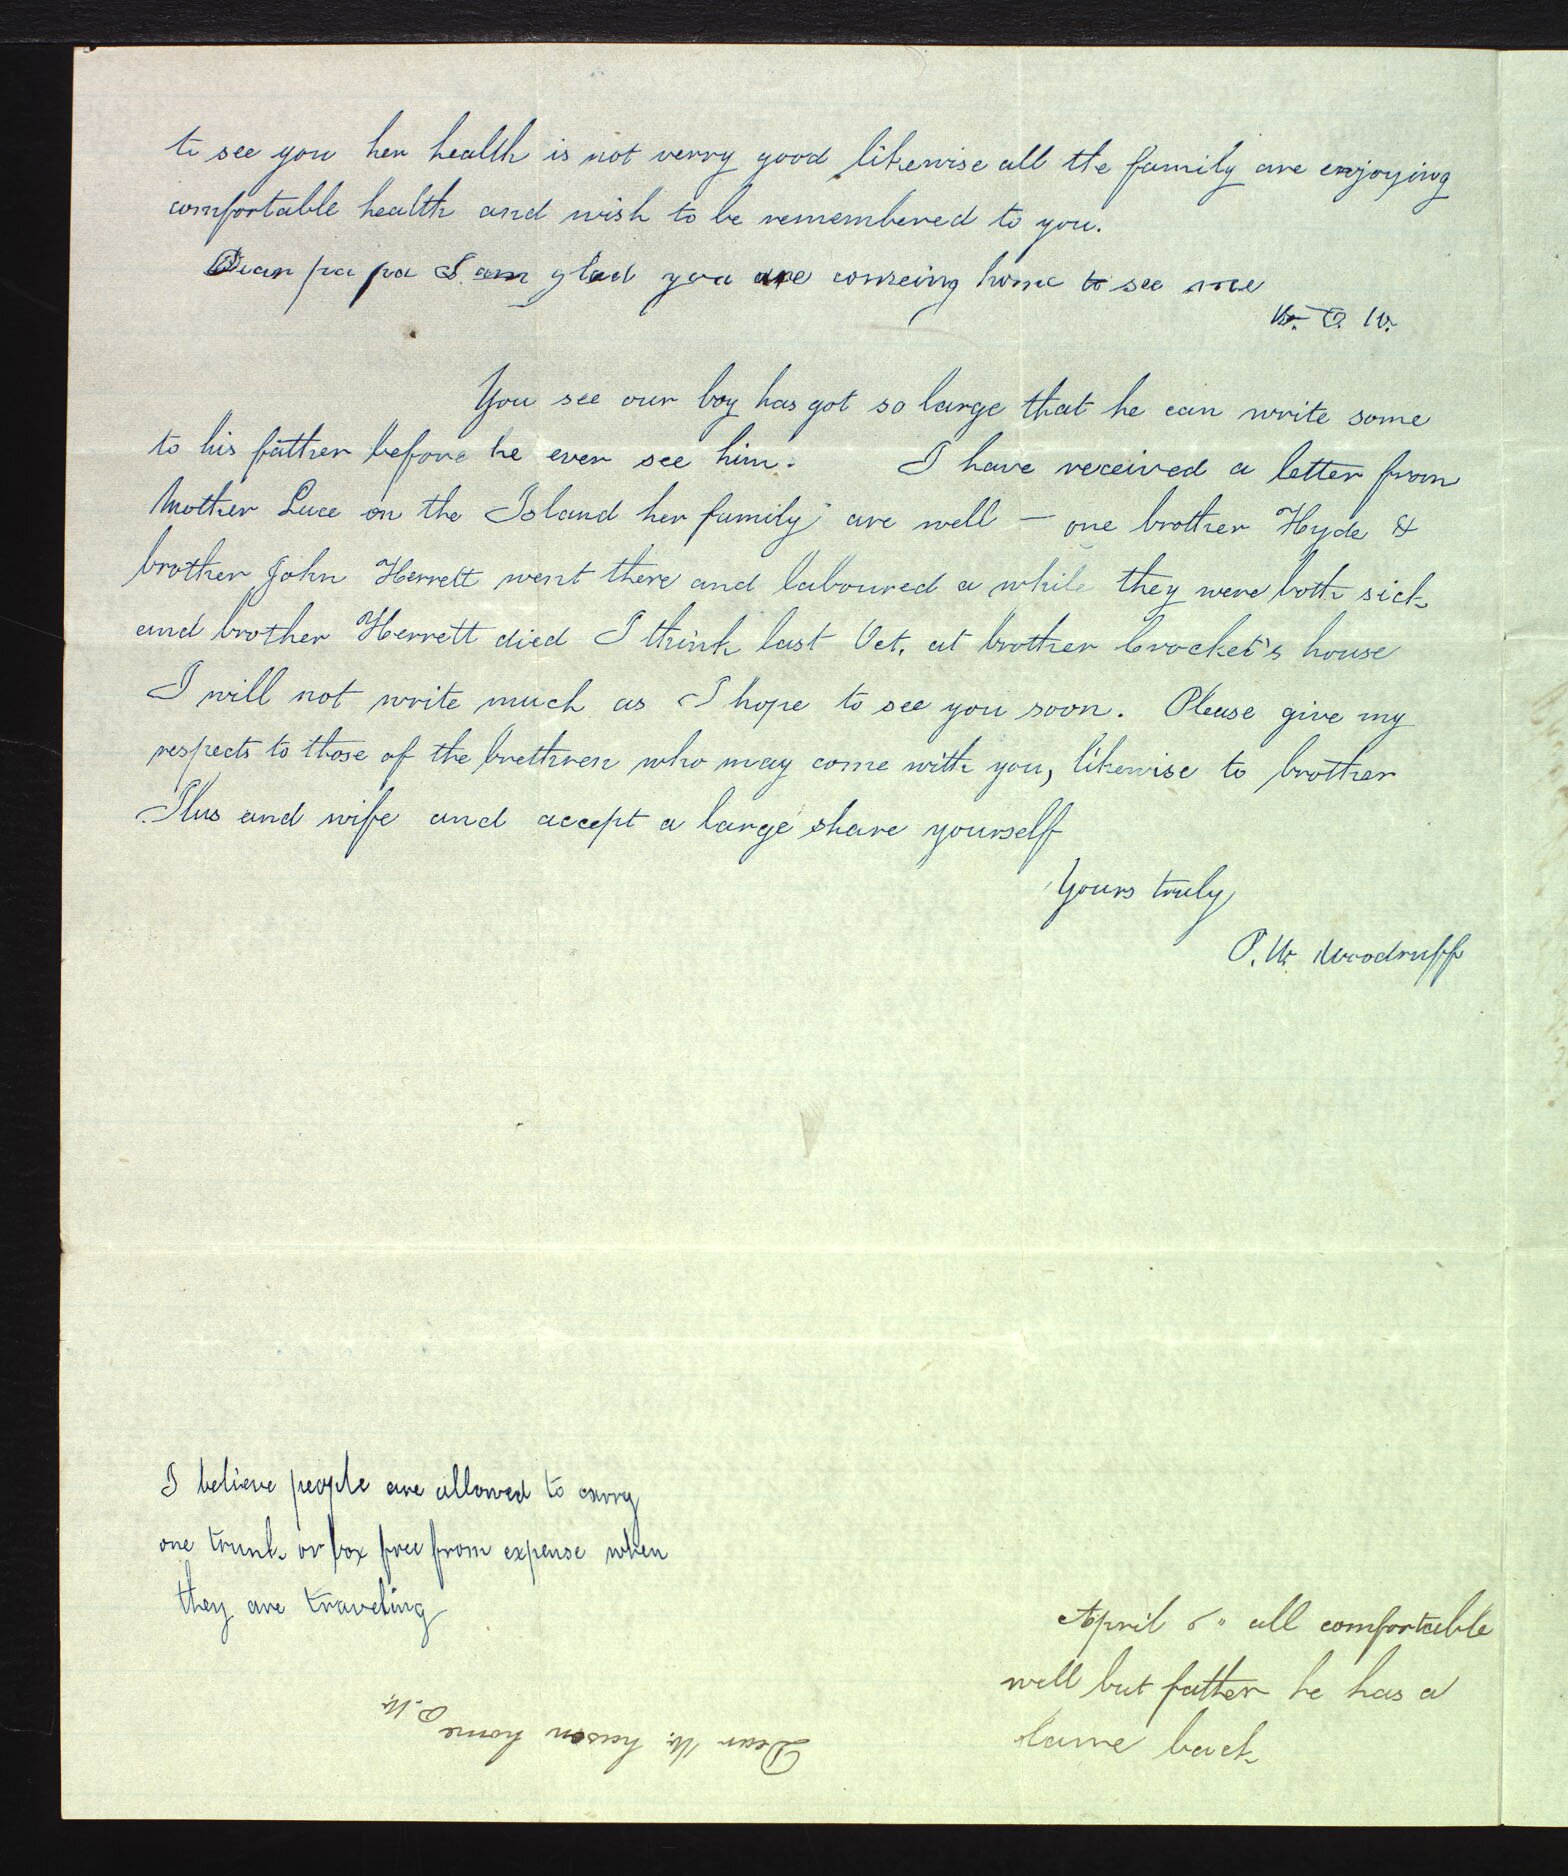 to see you her health is not verry good likewise all the family are enjoying
comfortable health and wish to be remembered to you.
Dear pa pa I am glad you are comeing home to see me
W. O. W.
You see our boy has got so large that he can write some
to his father before he ever see him. I have received a letter from
Mother Luce on the Island her family are well — one brother Hyde &
brother John Herrett went there and laboured a while they were both sick
and brother Herrett died I think last Oct. at brother Crocket's house
I will not write much as I hope to see you soon. Please give my
respects to those of the brethren who may come with you, likewise to brother
Ilus and wife and accept a large share yourself
Yours truly
P. W. Woodruff
I believe people are allowed to carry
one trunk or box free from expense when
they are traveling
April 6" all comfortable
well but father he has a
lame back
Dear W. hasen home
P. W.